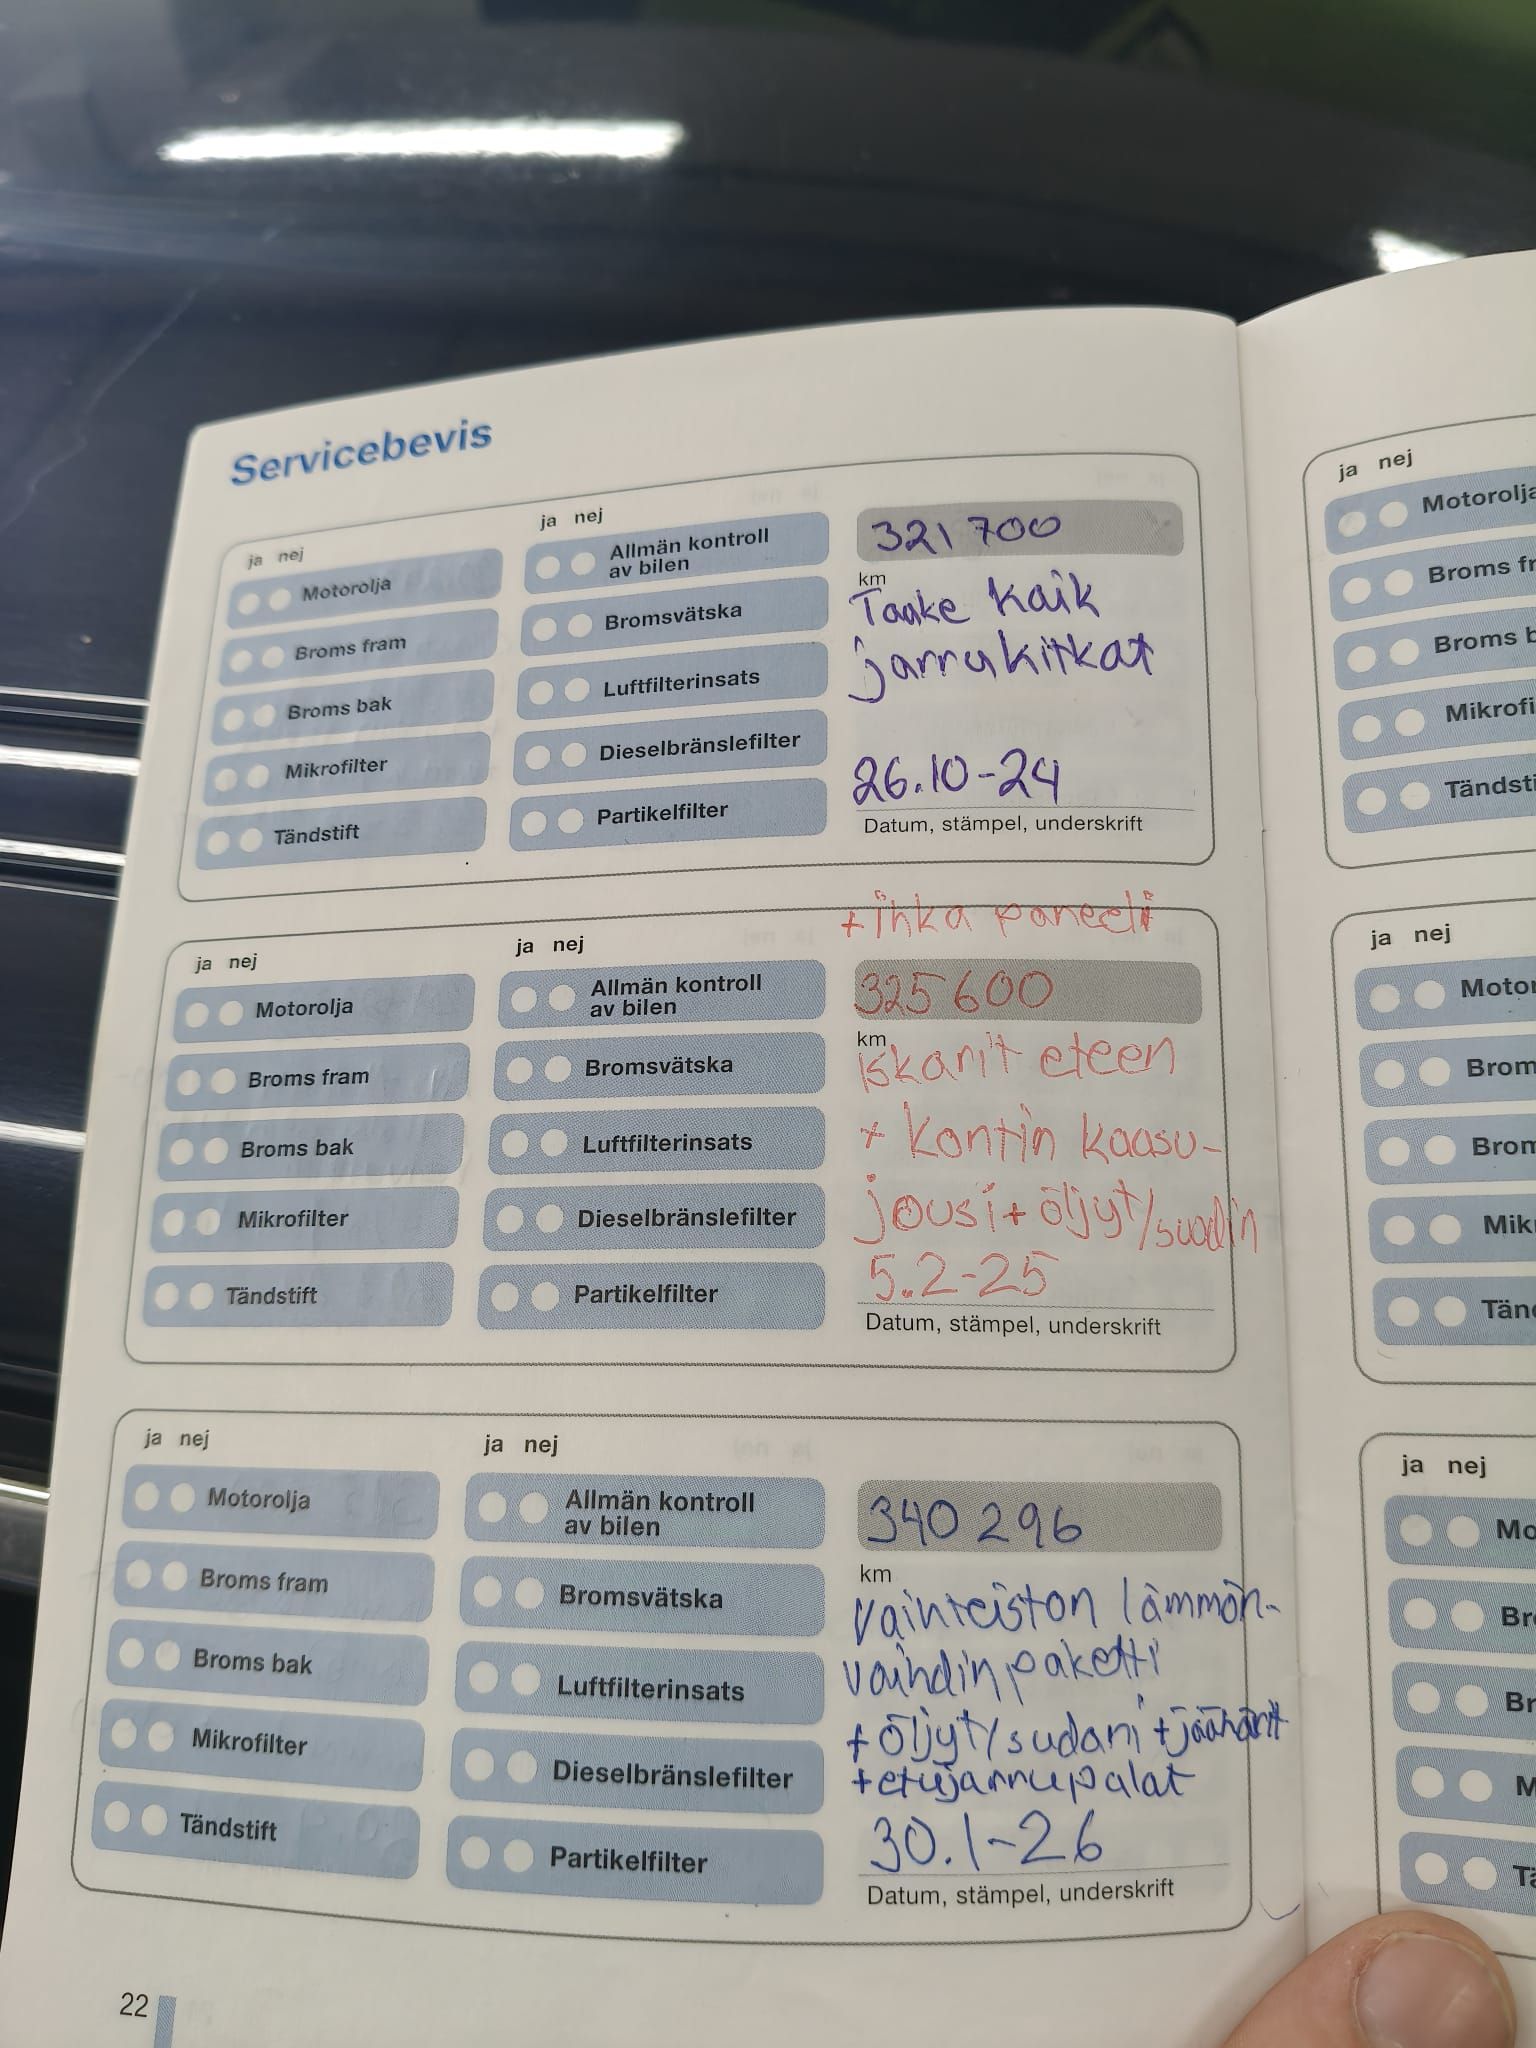 Servicebevis
ja nej
ja nej
Motorolja
Allmän kontroll
av bilen
Broms fram
Bromsvätska
Broms bak
Luftfilterinsats
Mikrofilter
Dieselbränslefilter
Tändstift
Partikelfilter
321 700
km
Taake kaik
jarrukitkat
26.10-24
Datum, stämpel, underskrift
ja nej
ja nej
Motorolja
Allmän kontroll
av bilen
Broms fram
Bromsvätska
Broms bak
Luftfilterinsats
Mikrofilter
Dieselbränslefilter
Tändstift
Partikelfilter
+ ihka paneeli
325 600
km
iskarit eteen
+ kontin kaasu-
jousi + öljyt/suodin
5.2-25
Datum, stämpel, underskrift
ja nej
ja nej
Motorolja
Allmän kontroll
av bilen
Broms fram
Bromsvätska
Broms bak
Luftfilterinsats
Mikrofilter
Dieselbränslefilter
Tändstift
Partikelfilter
340 296
km
lämmön-
vaihdin paketti
+ öljyt/sudari +
+ etujarrupalat
30.1-26
Datum, stämpel, underskrift
22
ja nej
Motorolja
Broms fr
Broms b
Mikrofi
Tändsti
ja nej
Motor
Brom
Brom
Mik
Tän
ja nej
Mo
Br
Br
M
Tä